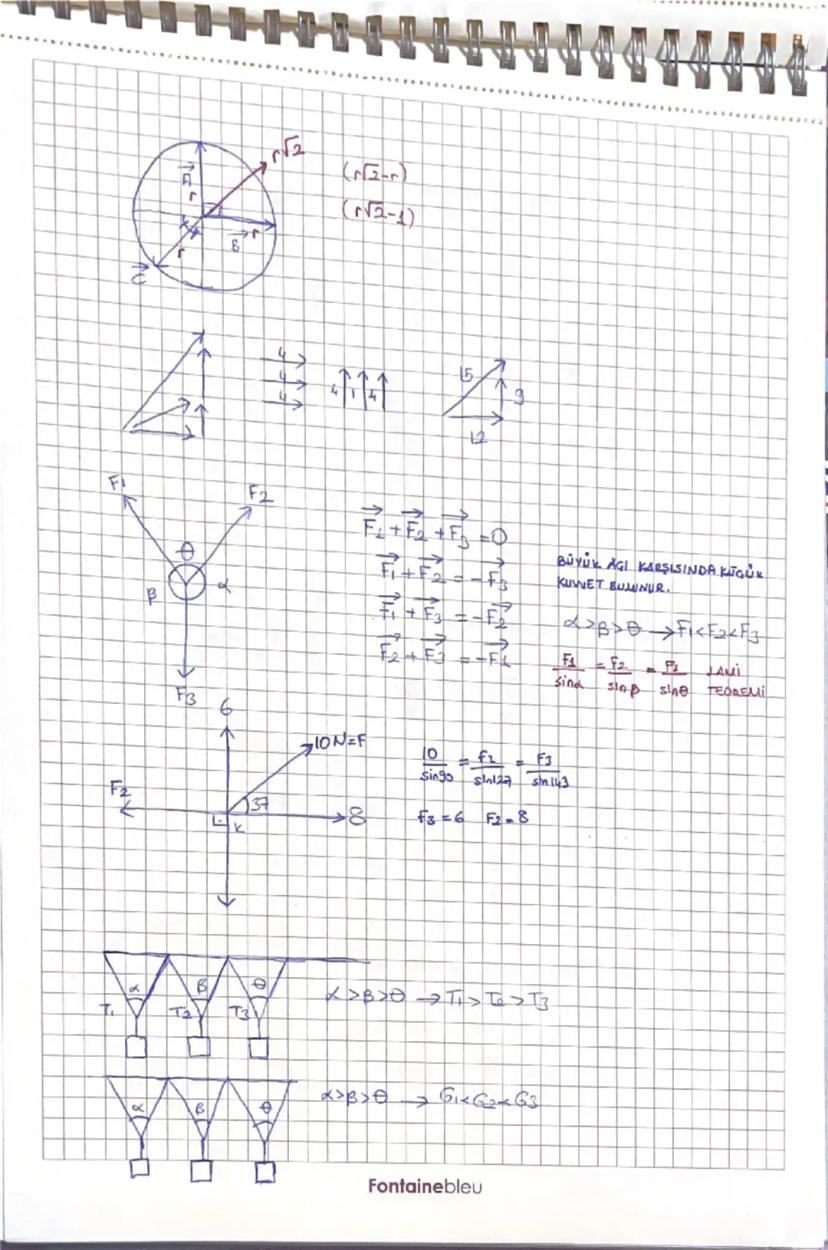 A⃗
r
r√2
B⃗ r
r
C⃗
(r√2-r)
(r√2-1)
4
4
4
4 1 4
15
9
12
F1
F2
θ
β
α
F3
F⃗1+F⃗2+F⃗3=0
F⃗1+F⃗2=-F⃗3
F⃗1+F⃗3=-F⃗2
F⃗2+F⃗3=-F⃗1
BÜYÜK AÇI KARŞISINDA KÜÇÜK
KUVVET BULUNUR.
α>β>θ→F1<F2<F3
F1/sinα=F2/sinβ=F3/sinθ LAMİ
TEOREMİ
6
10N=F
F2
37
8
K
10/sin90=F2/sin127=F3/sin143
F3=6 F2=8
α β θ
T1 T2 T3
α>β>θ→T1>T2>T3
α β θ
α>β>θ→G1<G2<G3
Fontainebleu